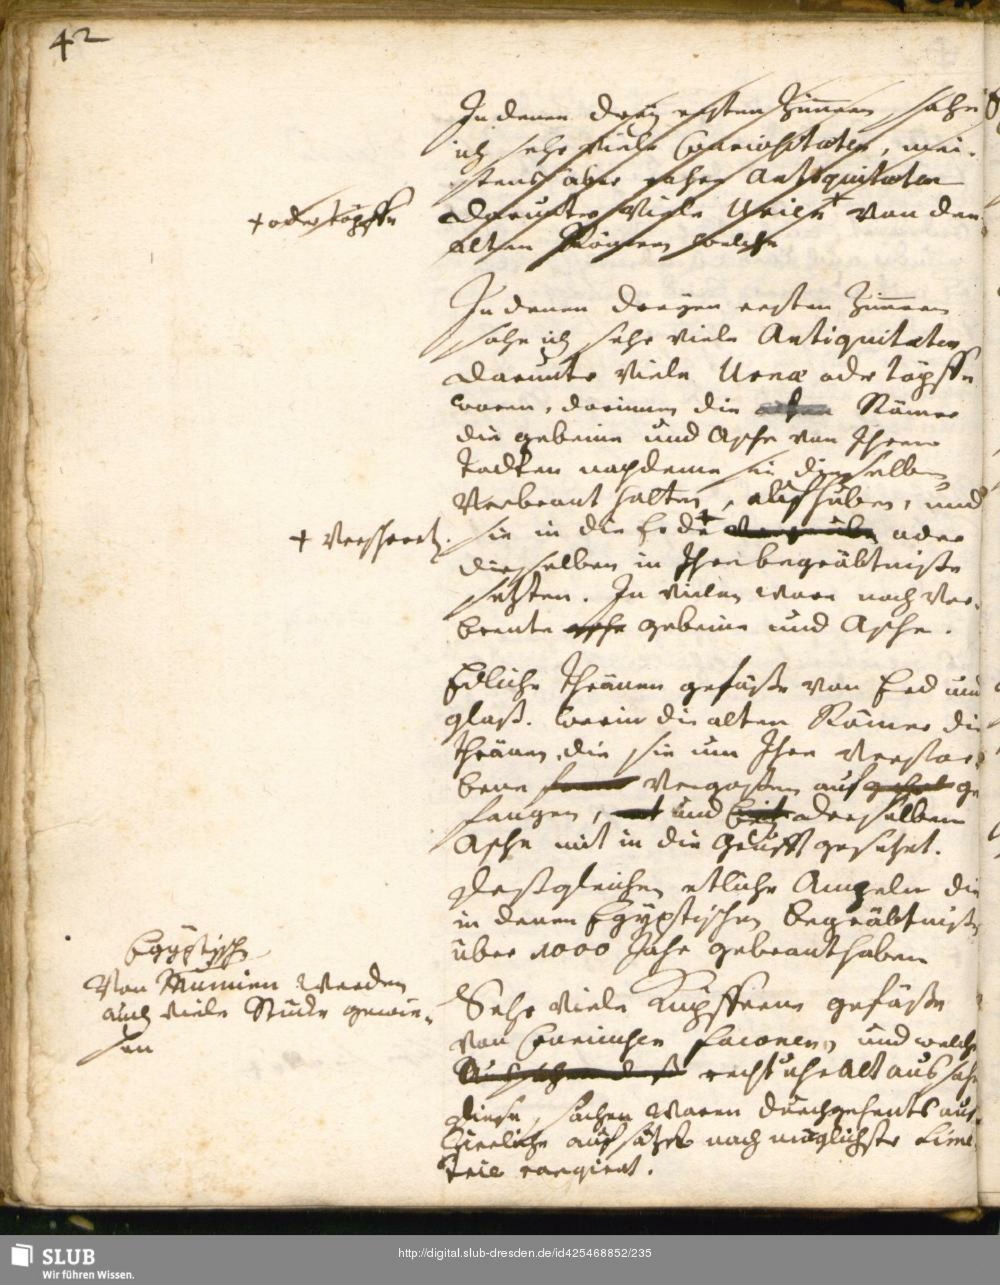 42
In denen dreÿ ersten Zimmern, sahe
ich sehr viele Couriositæten, mei-
stens aber sahen Antiquitæten
darunter viele Urnen + von den
alten Römern welche
+ oder töpffe
In denen dreÿen ersten Zimmern
sahe ich sehr viele Antiquitæten
darunter viele Urnæ oder töpffe
waren, darinnen die alten Römer
die gebeine und Asche von Ihren
Todten nachdeme sie dieselben
Verbrant hatten, aufhuben, und
sie in die Erde + oder
+ verscharrt
dieselben in Ihre begräbtniße
setzten. In vielen ware noch Ver-
brente asche gebeine und Asche.
Edliche Thränen gefäße von Erd und
glaß. worin die alten Römer die
Thränen, die sie um Ihre Verstor-
bene Vergoßen auf ge
fangen, und derselben
Asche mit in die Grufft gesetzet.
Deßgleichen etliche Ampeln die
in denen Egÿptischen Begräbtnißen
über 1000 Jahr gebrant haben
Egÿptische
Von Mumien werden
auch viele Stücke gewie-
sen
Sehr viele Kupfferne gefäße
von Couriusen Faconen, und welche
recht uhr Alt aus sahen
diese sachen waren durchgehents auf
Zierliche aufsätze nach müglichster Sime-
trie rangiret.
SLUB
Wir führen Wissen.
http://digital.slub-dresden.de/id425468852/235